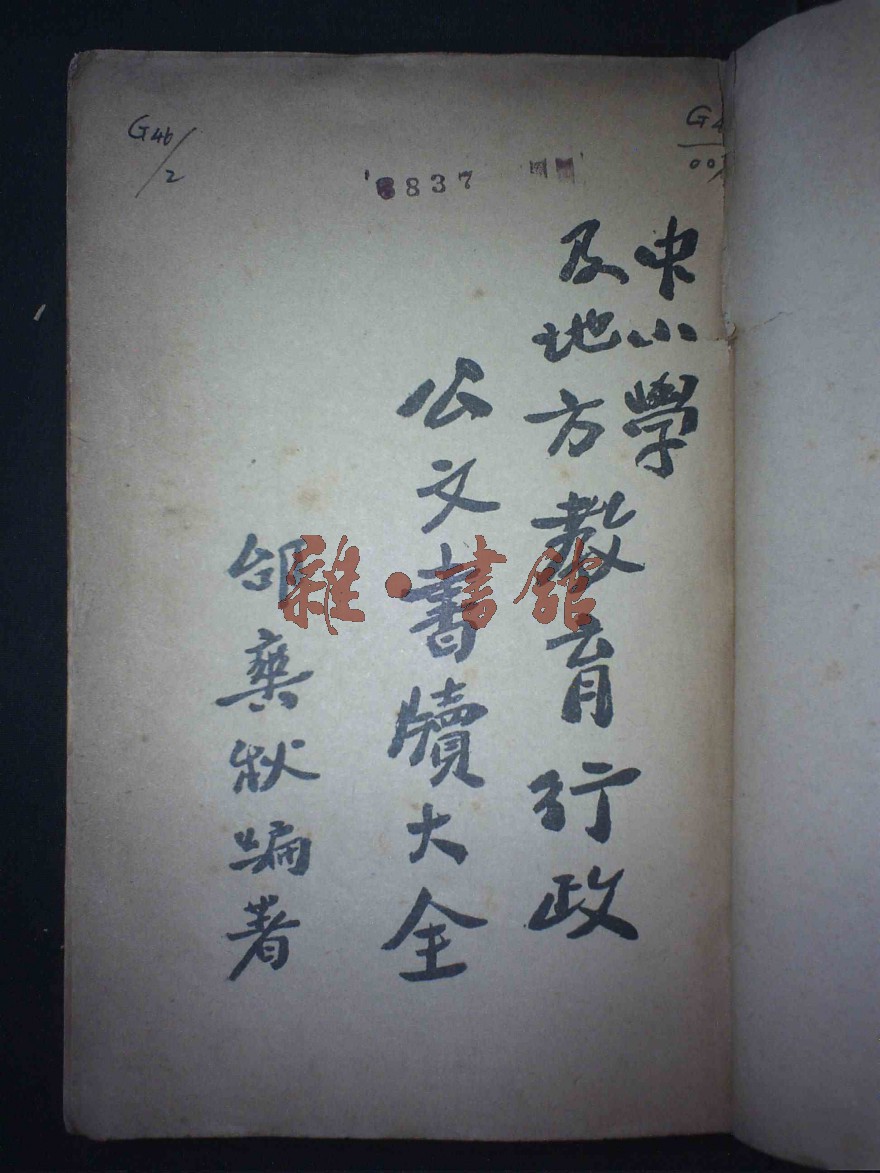 G46/2
中小學
及地方教育行政
公文書牘大全
邰爽秋編著
雜·書館